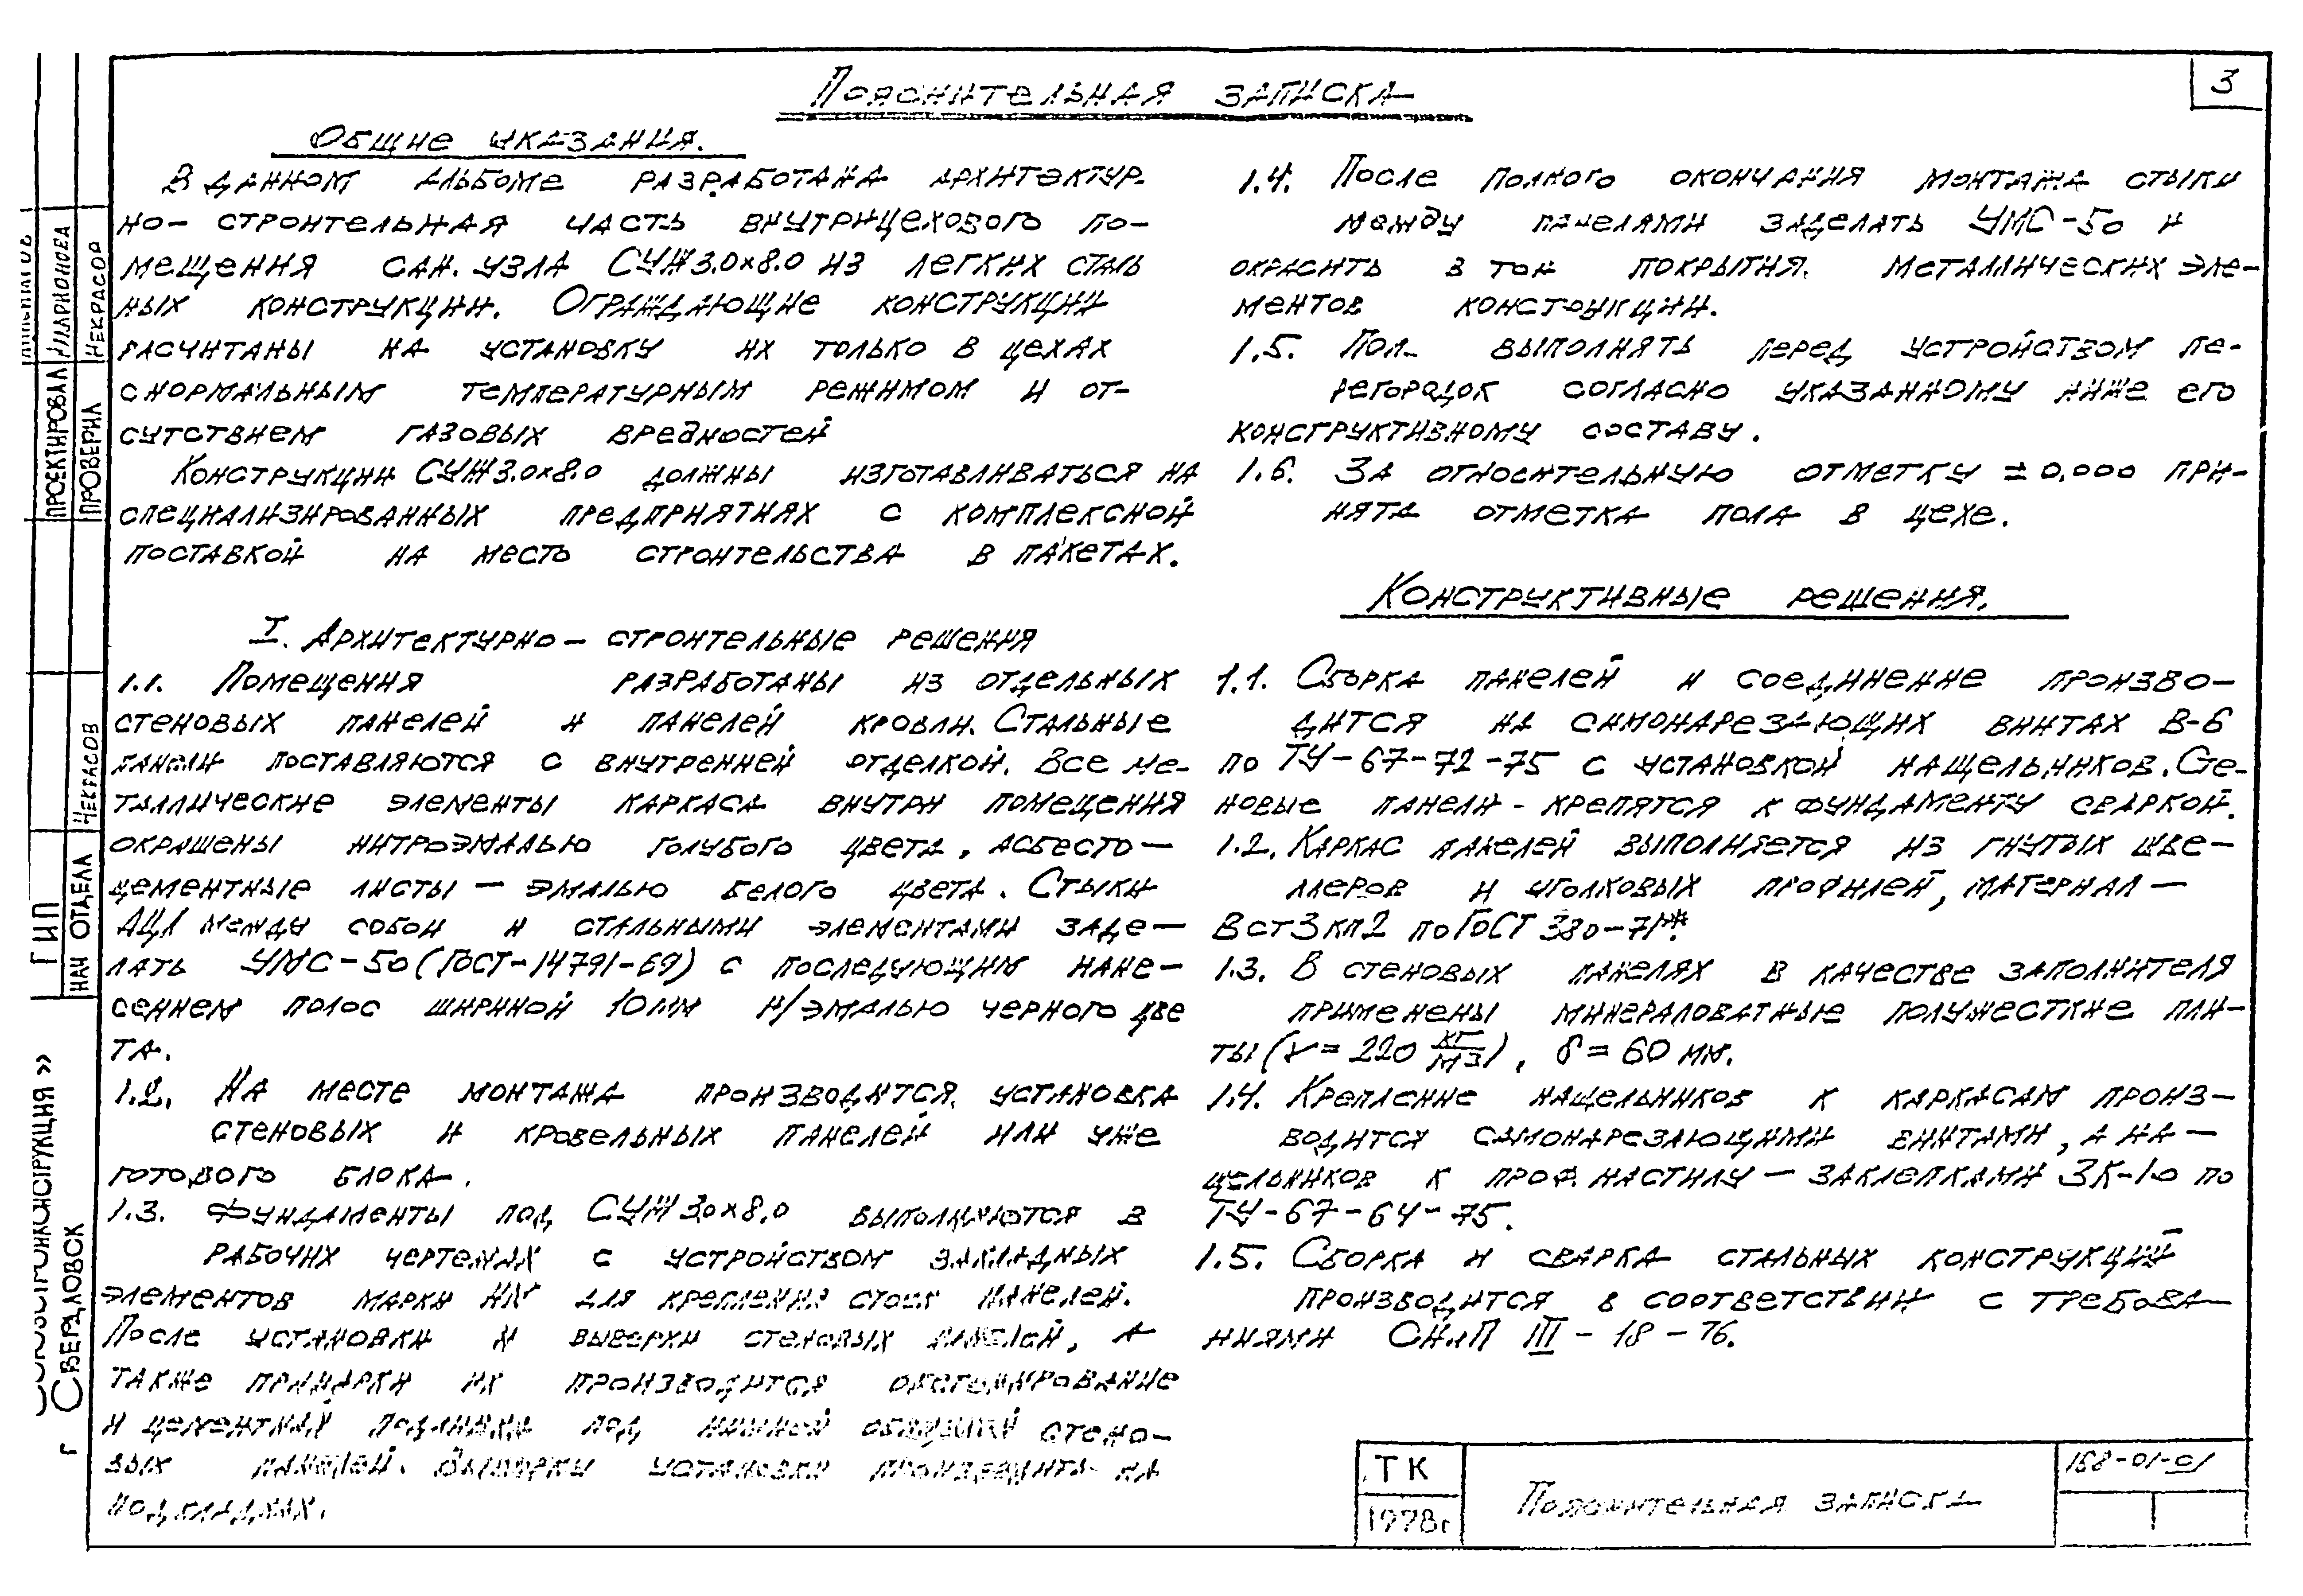 Пояснительная записка
3
Общие указания.
В данном альбоме разработана архитектур-
но-строительная часть внутрицехового по-
мещения сан. узла СУЖ 3.0×8.0 из легких сталь
ных конструкции. Ограждающие конструкции
расчитаны на установку их только в цехах
с нормальным температурным режимом и от-
сутствием газовых вредностей
Конструкции СУЖ 3.0×8.0 должны изготавливаться на
специализированных предприятиях с комплексной
поставкой на место строительства в пакетах.
I. Архитектурно-строительные решения
1.1. Помещения разработаны из отдельных
стеновых панелей и панелей кровли. Стальные
панели поставляются с внутренней отделкой. Все ме-
таллические элементы каркаса внутри помещения
окрашены нитроэмалью голубого цвета, асбесто-
цементные листы - эмалью белого цвета. Стыки
АЦЛ между собой и стальными элементами заде-
лать УМС-50 (ГОСТ-14791-69) с последующим нане-
сением полос шириной 10мм н/эмалью черного цве
та.
1.2. На месте монтажа производится установка
стеновых и кровельных панелей или уже
готового блока.
1.3. Фундаменты под СУЖ 3.0×8.0 выполняются в
рабочих чертежах с устройством закладных
элементов марки для крепления стоек панелей.
После установки и выверки стеновых панелей, а
также приварки их производится
и цементной подливки под нижней обвязкой стено-
вых панелей. Выверки установки производить на
подкладках.
1.4. После полного окончания монтажа стыки
между панелями заделать УМС-50 и
окрасить в тон покрытия. металлических эле-
ментов конструкции.
1.5. Пол- выполнять перед устройством пе-
регородок согласно указанному ниже его
конструктивному составу.
1.6. За относительную отметку ±0.000 при-
нята отметка пола в цехе.
Конструктивные решения.
1.1. Сборка панелей и соединение произво-
дится на самонарезающих винтах В-6
по ТУ-67-72-75 с установкой нащельников. Сте-
новые панели - крепятся к фундаменту сваркой.
1.2. Каркас панелей выполняется из гнутых шве-
ллеров и уголковых профилей, материал-
В ст3 кп2 по ГОСТ 380-71*.
1.3. В стеновых панелях в качестве заполнителя
применены минераловатные полужесткие пли-
ты (γ = 220 кг/м3), δ = 60 мм.
1.4. Крепление нащельников к каркасам произ-
водится самонарезающими винтами, а на-
щельников к проф. настилу - заклепками ЗК-10 по
ТУ-67-64-75.
1.5. Сборка и сварка стальных конструкций
производится в соответствии с требова-
ниями СНиП III-18-76.
ТК
1978г
Пояснительная записка
168-01-01
ПРОЕКТИРОВАЛ
ПРОВЕРИЛ НЕКРАСОВ
ГИП
НАЧ ОТДЕЛА НЕКРАСОВ
г СВЕРДЛОВСК